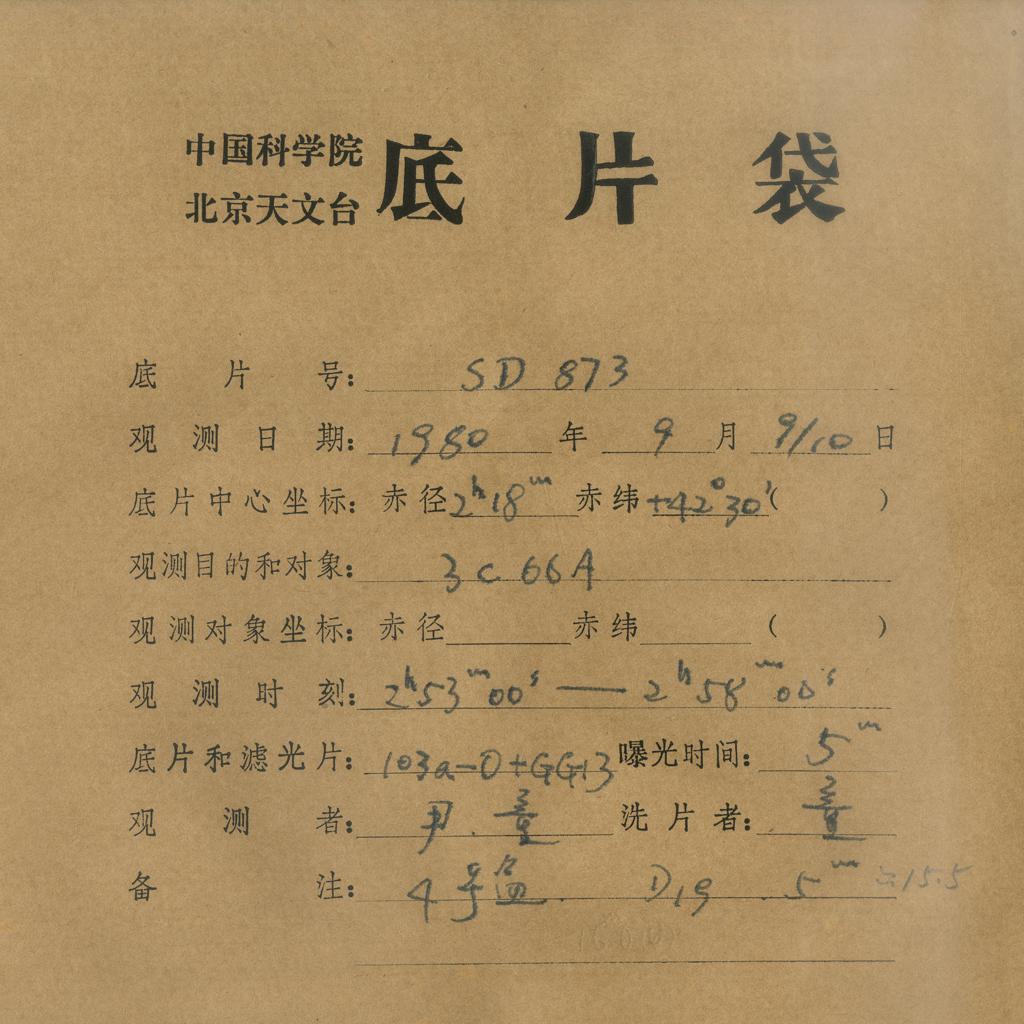 中国科学院
北京天文台 底片袋
底片号: SD 873
观测日期: 1980 年 9 月 9/10 日
底片中心坐标: 赤径 2h18m 赤纬 +42°30′ ( )
观测目的和对象: 3C 66A
观测对象坐标: 赤径 赤纬 ( )
观测时刻: 2h53m00s — 2h58m00s
底片和滤光片: 103a-O+GG13 曝光时间: 5m
观测者: 尹. 童 洗片者: 童
备注: 4号盒. D19 5m 15.5